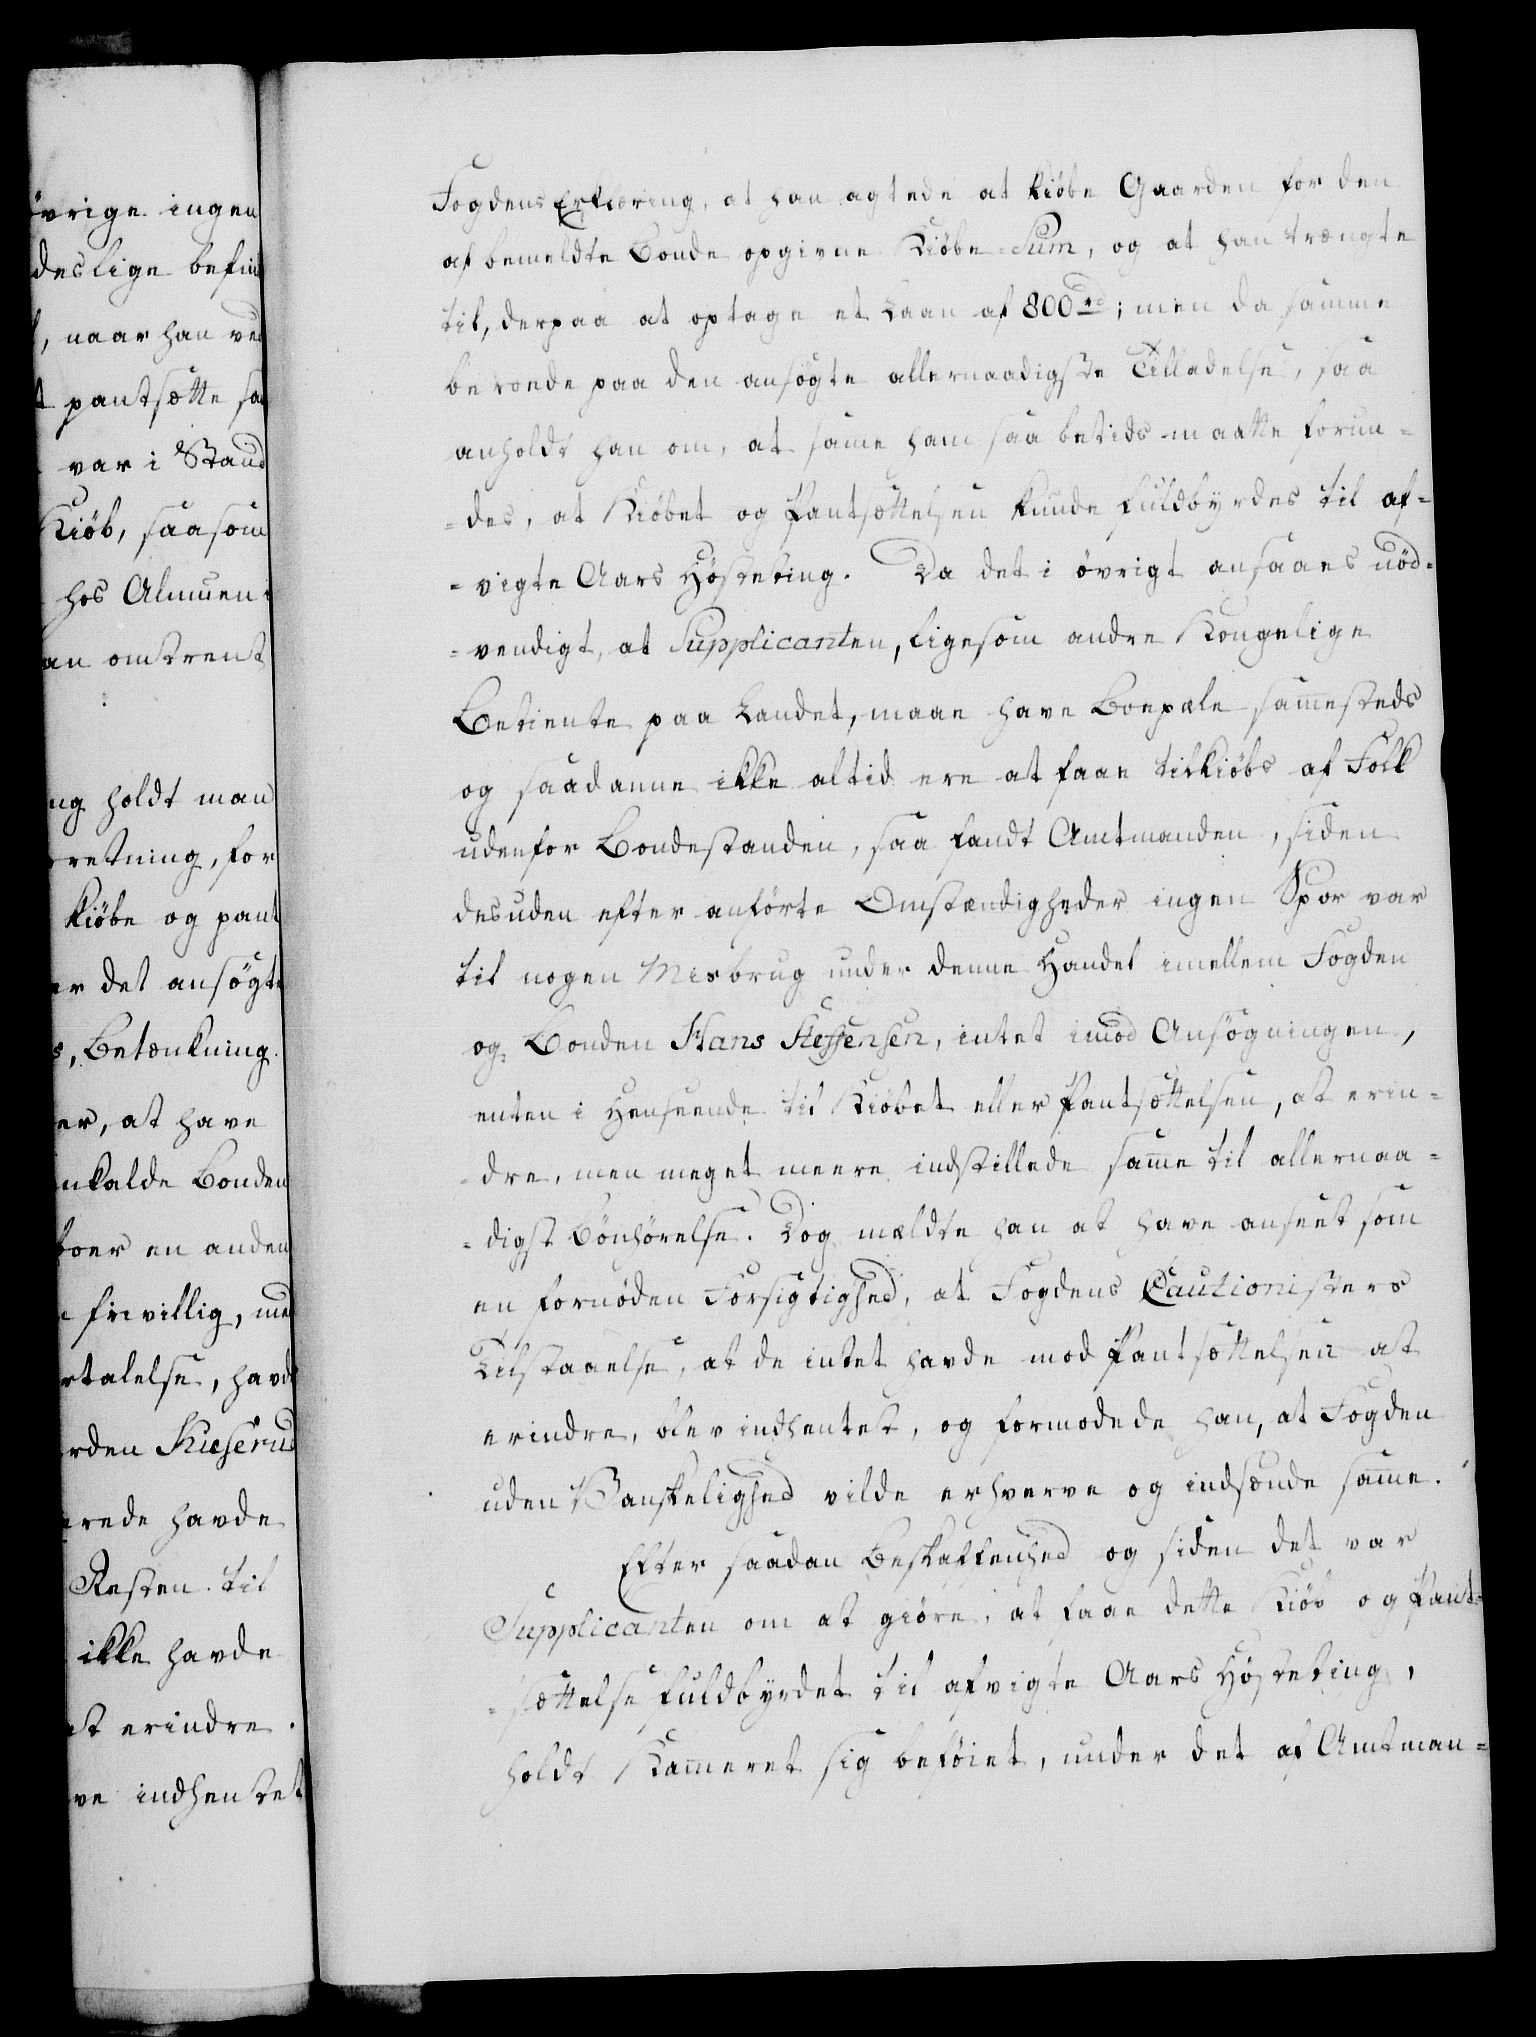 övrige ingen
deslige befin
naar han ved
pantsætte saa
var i Stand
Kiöb, saasom
hos Almuen i
an omtrent
ng holdt man
retning, for
kiöbe og pant
er det ansögte
s, Betænkning
er, at have
nkalde Bonden
boer en anden
frivillig, me
rtalelse, havde
rden Kieserud
erede havde
Resten til
ikke havde
at erindre.
ve indhentet
Fogdens Erklæring, at han agtede at kiöbe Gaarden for den
af bemeldte Bonde opgivne Kiöbe-Sum, og at han trængte
til, derpaa at optage et Laan af 800 rd; men da samme
beroede paa den ansögte allernaadigste Tilladelse, saa
anholdt han om, at same ham saa betids maatte forun-
-des, at Kiöbet og Pantsættelsen kunde fuldbyrdes til af-
-vigte Aars Hösteting. Da det i övrigt ansaaes nöd-
-vendigt, at Supplicanten, ligesom andre Kongelige
Betiente paa Landet, maae have Boepæle sammesteds
og saadanne ikke altid ere at faae tilkiöbs af Folk
udenfor Bondestanden, saa fandt Amtmanden, siden
desuden efter anförte Omstændigheder ingen Spor var
til nogen Misbrug under denne Handel imellem Fogden
og Bonden Hans Steffensen, intet imod Ansögningen,
enten i Henseende til Kiöbet eller Pantsættelsen, at erin-
-dre, men meget meere indstillede samme til allernaa-
-digst Bönhörelse. Dog meldte han at have anseet som
en fornöden Forsigtighed, at Fogdens Cautionisters
Tilstaaelse, at de intet havde mod Pantsættelsen at
erindre, blev indhentet, og formodede han, at Fogden
uden Vanskelighed vilde erhverve og indsende samme.
Efter saadan Beskaffenhed og siden det var
Supplicanten om at giöre, at faae dette Kiöb og Pant-
-sættelse fuldbyrdet til afvigte Aars Hösteting,
holdt Kammeret sig beföiet, under det af Amtman-